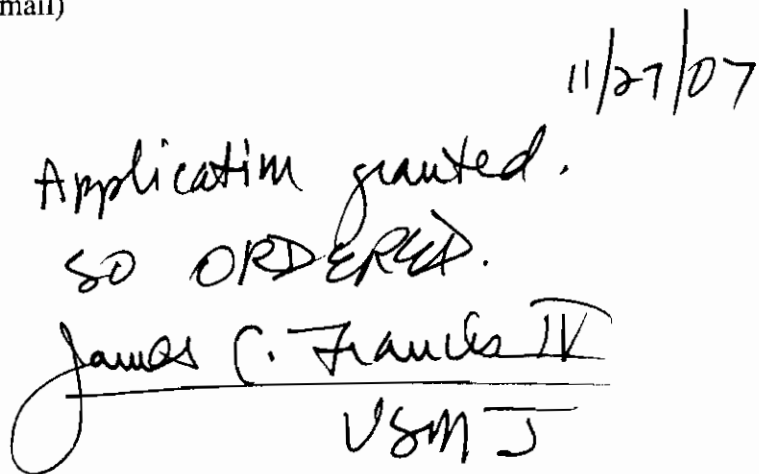 mail)
11/27/07
Application granted.
SO ORDERED.
James C. Francis IV
USMJ